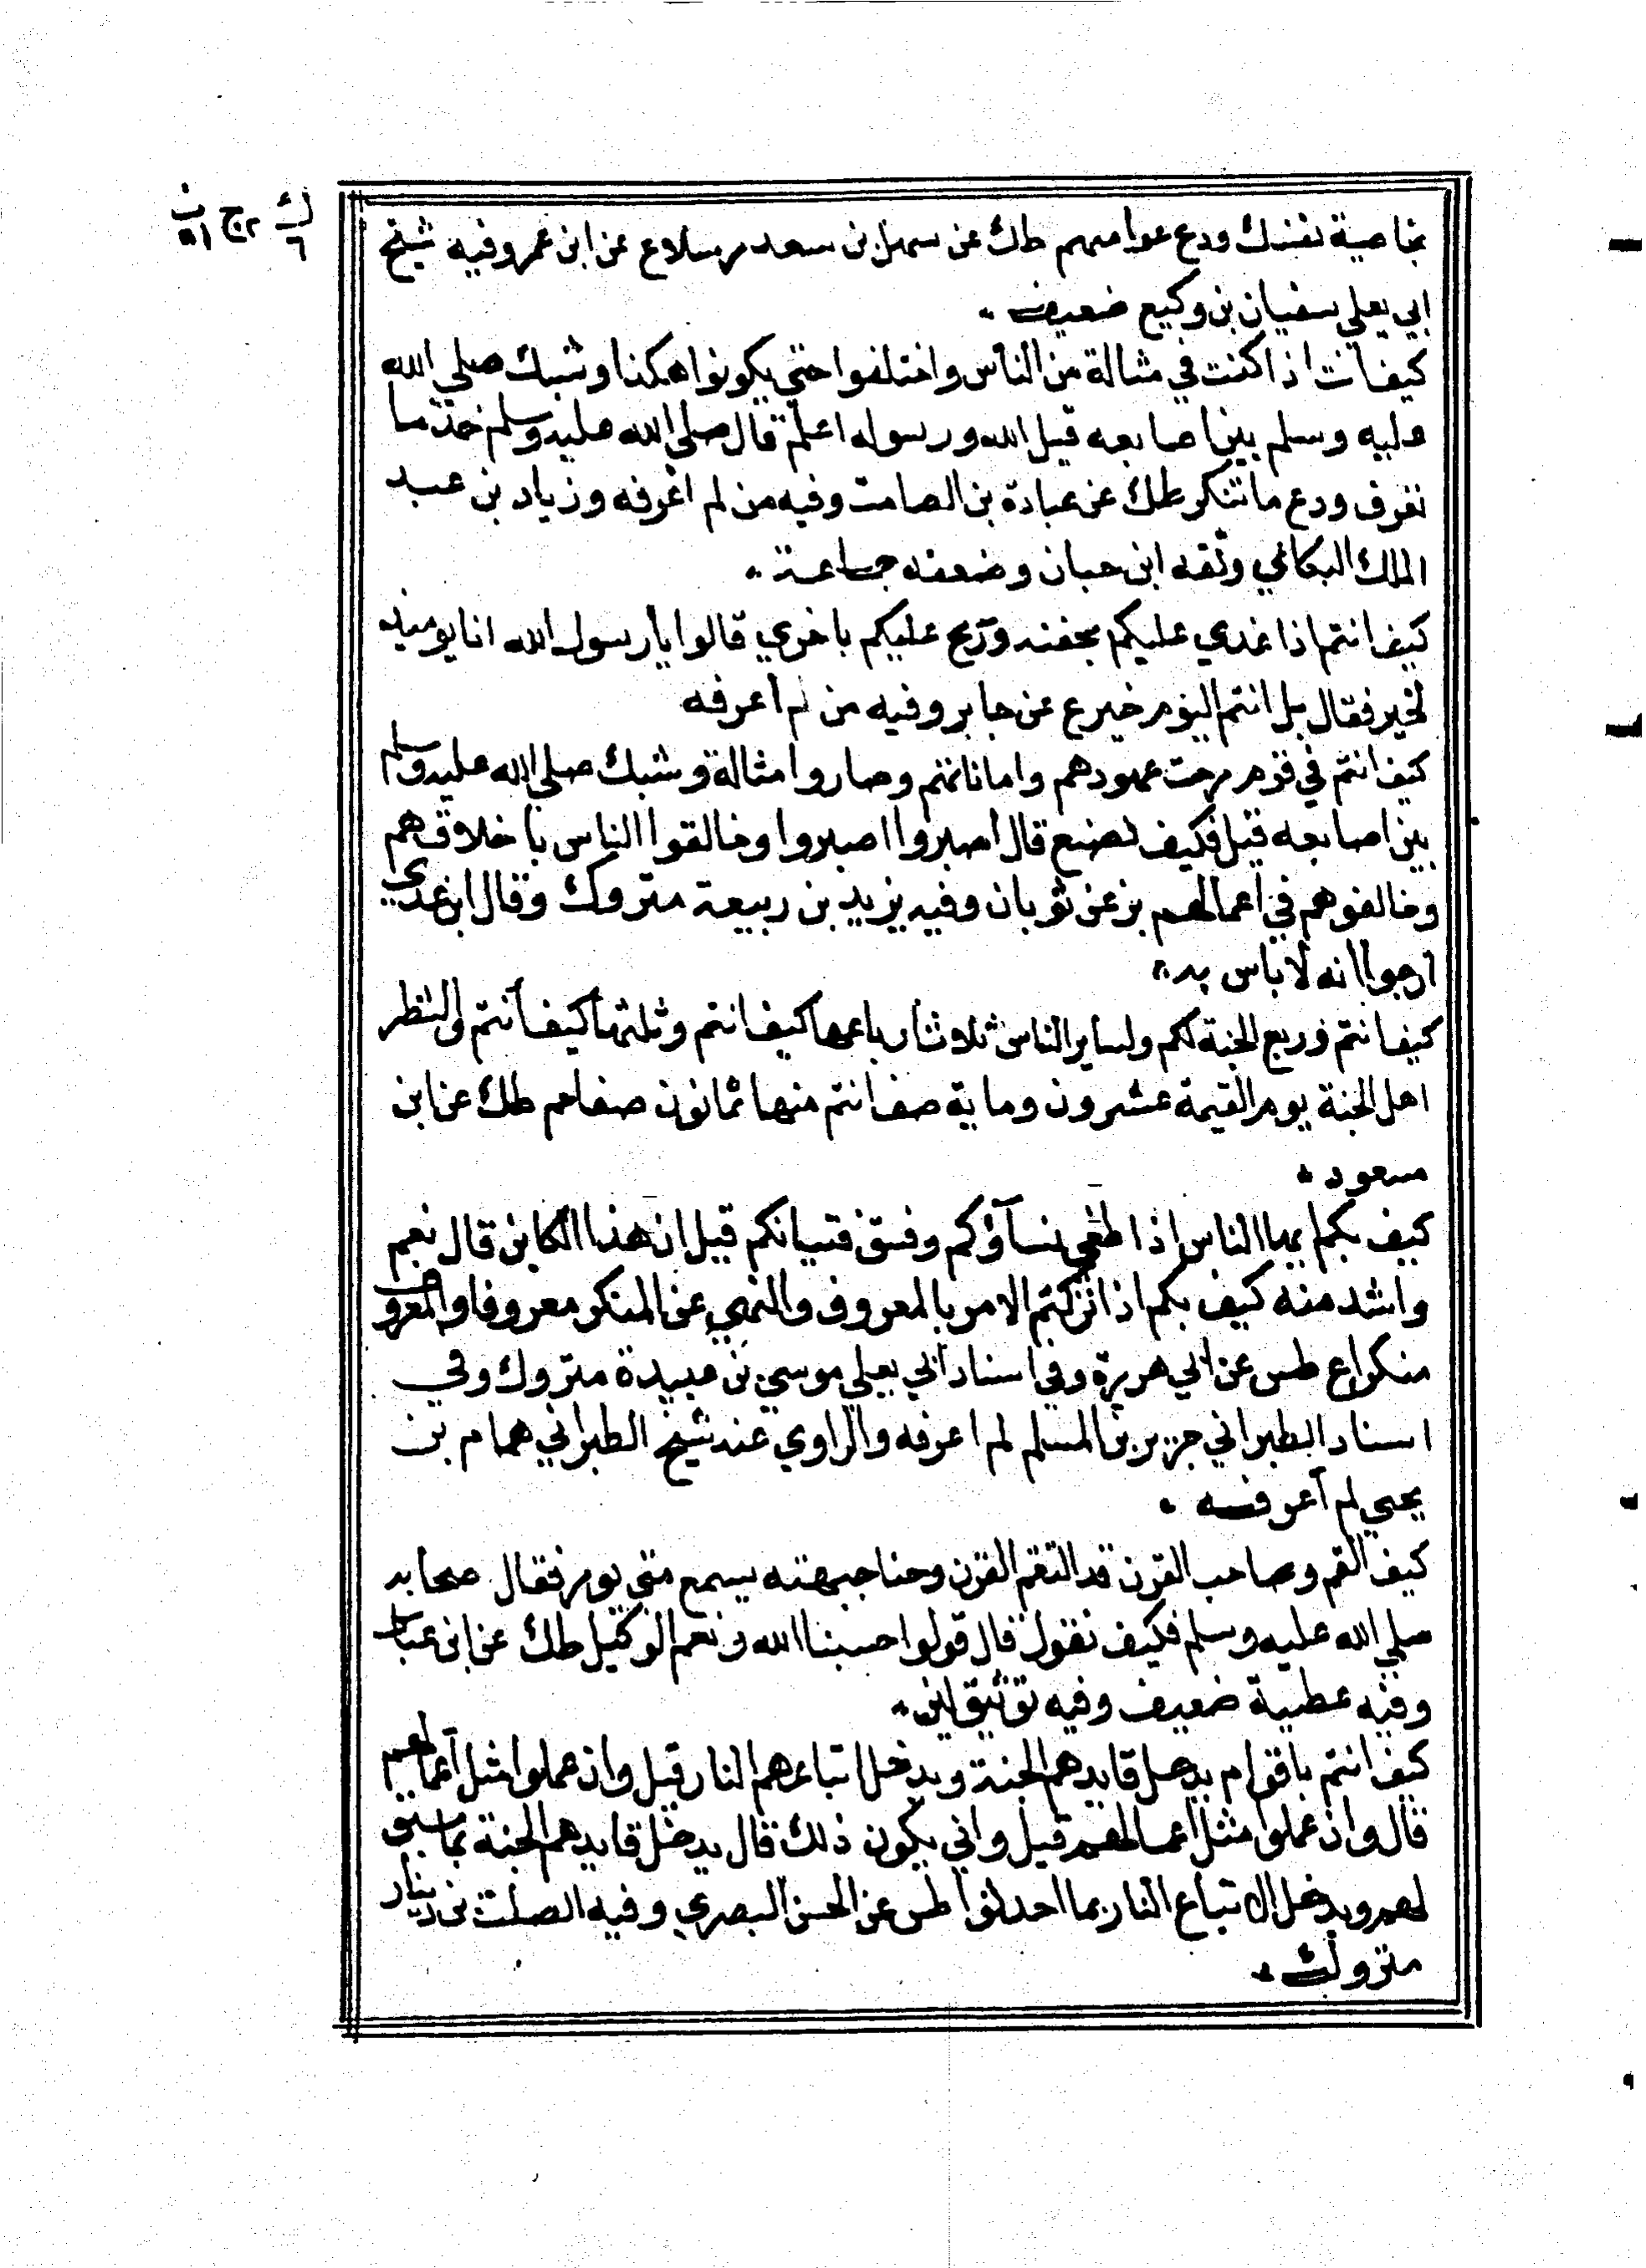 بخاصية نفسك ودع عوامهم طك عن سهل بن سعد مرسلا ع عن ابن عمر وفيه شيخ
ابي يعلي سفيان بن وكيع ضعيف
كيف انت اذا كنت في مثالة من الناس واختلفوا حتي يكونوا هكذا وشبك صلي الله
عليه وسلم بين اصابعه قيل الله ورسوله اعلم قال صلي الله عليه وسلم خذ ما
تعرف ودع ما تنكر طك عن عبادة بن الصامت وفيه من لم اعرفه وزياد بن عبد
الملك البكائي وثقه ابن حبان وضعفه جماعة
كيف انتم اذا غدي عليكم بجفنه وريح عليكم باخري قالوا يا رسول الله انا يومئذ
لخير فقال بل انتم اليوم خير ع عن جابر وفيه من لم اعرفه
كيف انتم في قوم مرجت عهودهم واماناتهم وصاروا مثالة وشبك صلي الله عليه وسلم
بين اصابعه قيل فكيف نصنع قال اصبروا اصبروا وخالقوا الناس باخلاقهم
وخالفوهم في اعمالهم بز عن ثوبان وفيه يزيد بن ربيعة متروك وقال ابن عدي
ارجوا انه لا باس به
كيف انتم وربع الجنة لكم ولساير الناس ثلاثة ارباعها كيف انتم وثلثها كيف انتم والشطر
اهل الجنة يوم القيمة عشرون وماية صف انتم منها ثمانون صفا حم طك عن ابن
مسعود
كيف بكم ايها الناس اذا طغي نساؤكم وفسق فتيانكم قيل ان هذا الكاين قال نعم
واشد منه كيف بكم اذا تركتم الامر بالمعروف والنهي عن المنكر معروفا والمعروف
منكرا ع طس عن ابي هريرة وفي اسناد ابي يعلي موسي بن عبيدة متروك وفي
اسناد الطبراني جرير بن المسلم لم اعرفه والراوي عنه شيخ الطبراني همام بن
يحيي لم اعرفه
كيف انعم وصاحب القرن قد التقم القرن وحنا جبهته يسمع متي يومر فقال صحابه
صلي الله عليه وسلم فكيف نقول قال قولوا حسبنا الله ونعم الوكيل طك عن ابن عباس
وفيه عطية ضعيف وفيه توثيق لين
كيف انتم باقوام يدخل قايدهم الجنة ويدخل اتباعهم النار قيل وان عملوا مثل اعمالهم
قال وان عملوا مثل اعمالهم قيل واني يكون ذلك قال يدخل قايدهم الجنة بما سبق
لهم ويدخل الاتباع النار بما احدثوا طس عن الحسن البصري وفيه الصلت بن دينار
متروك